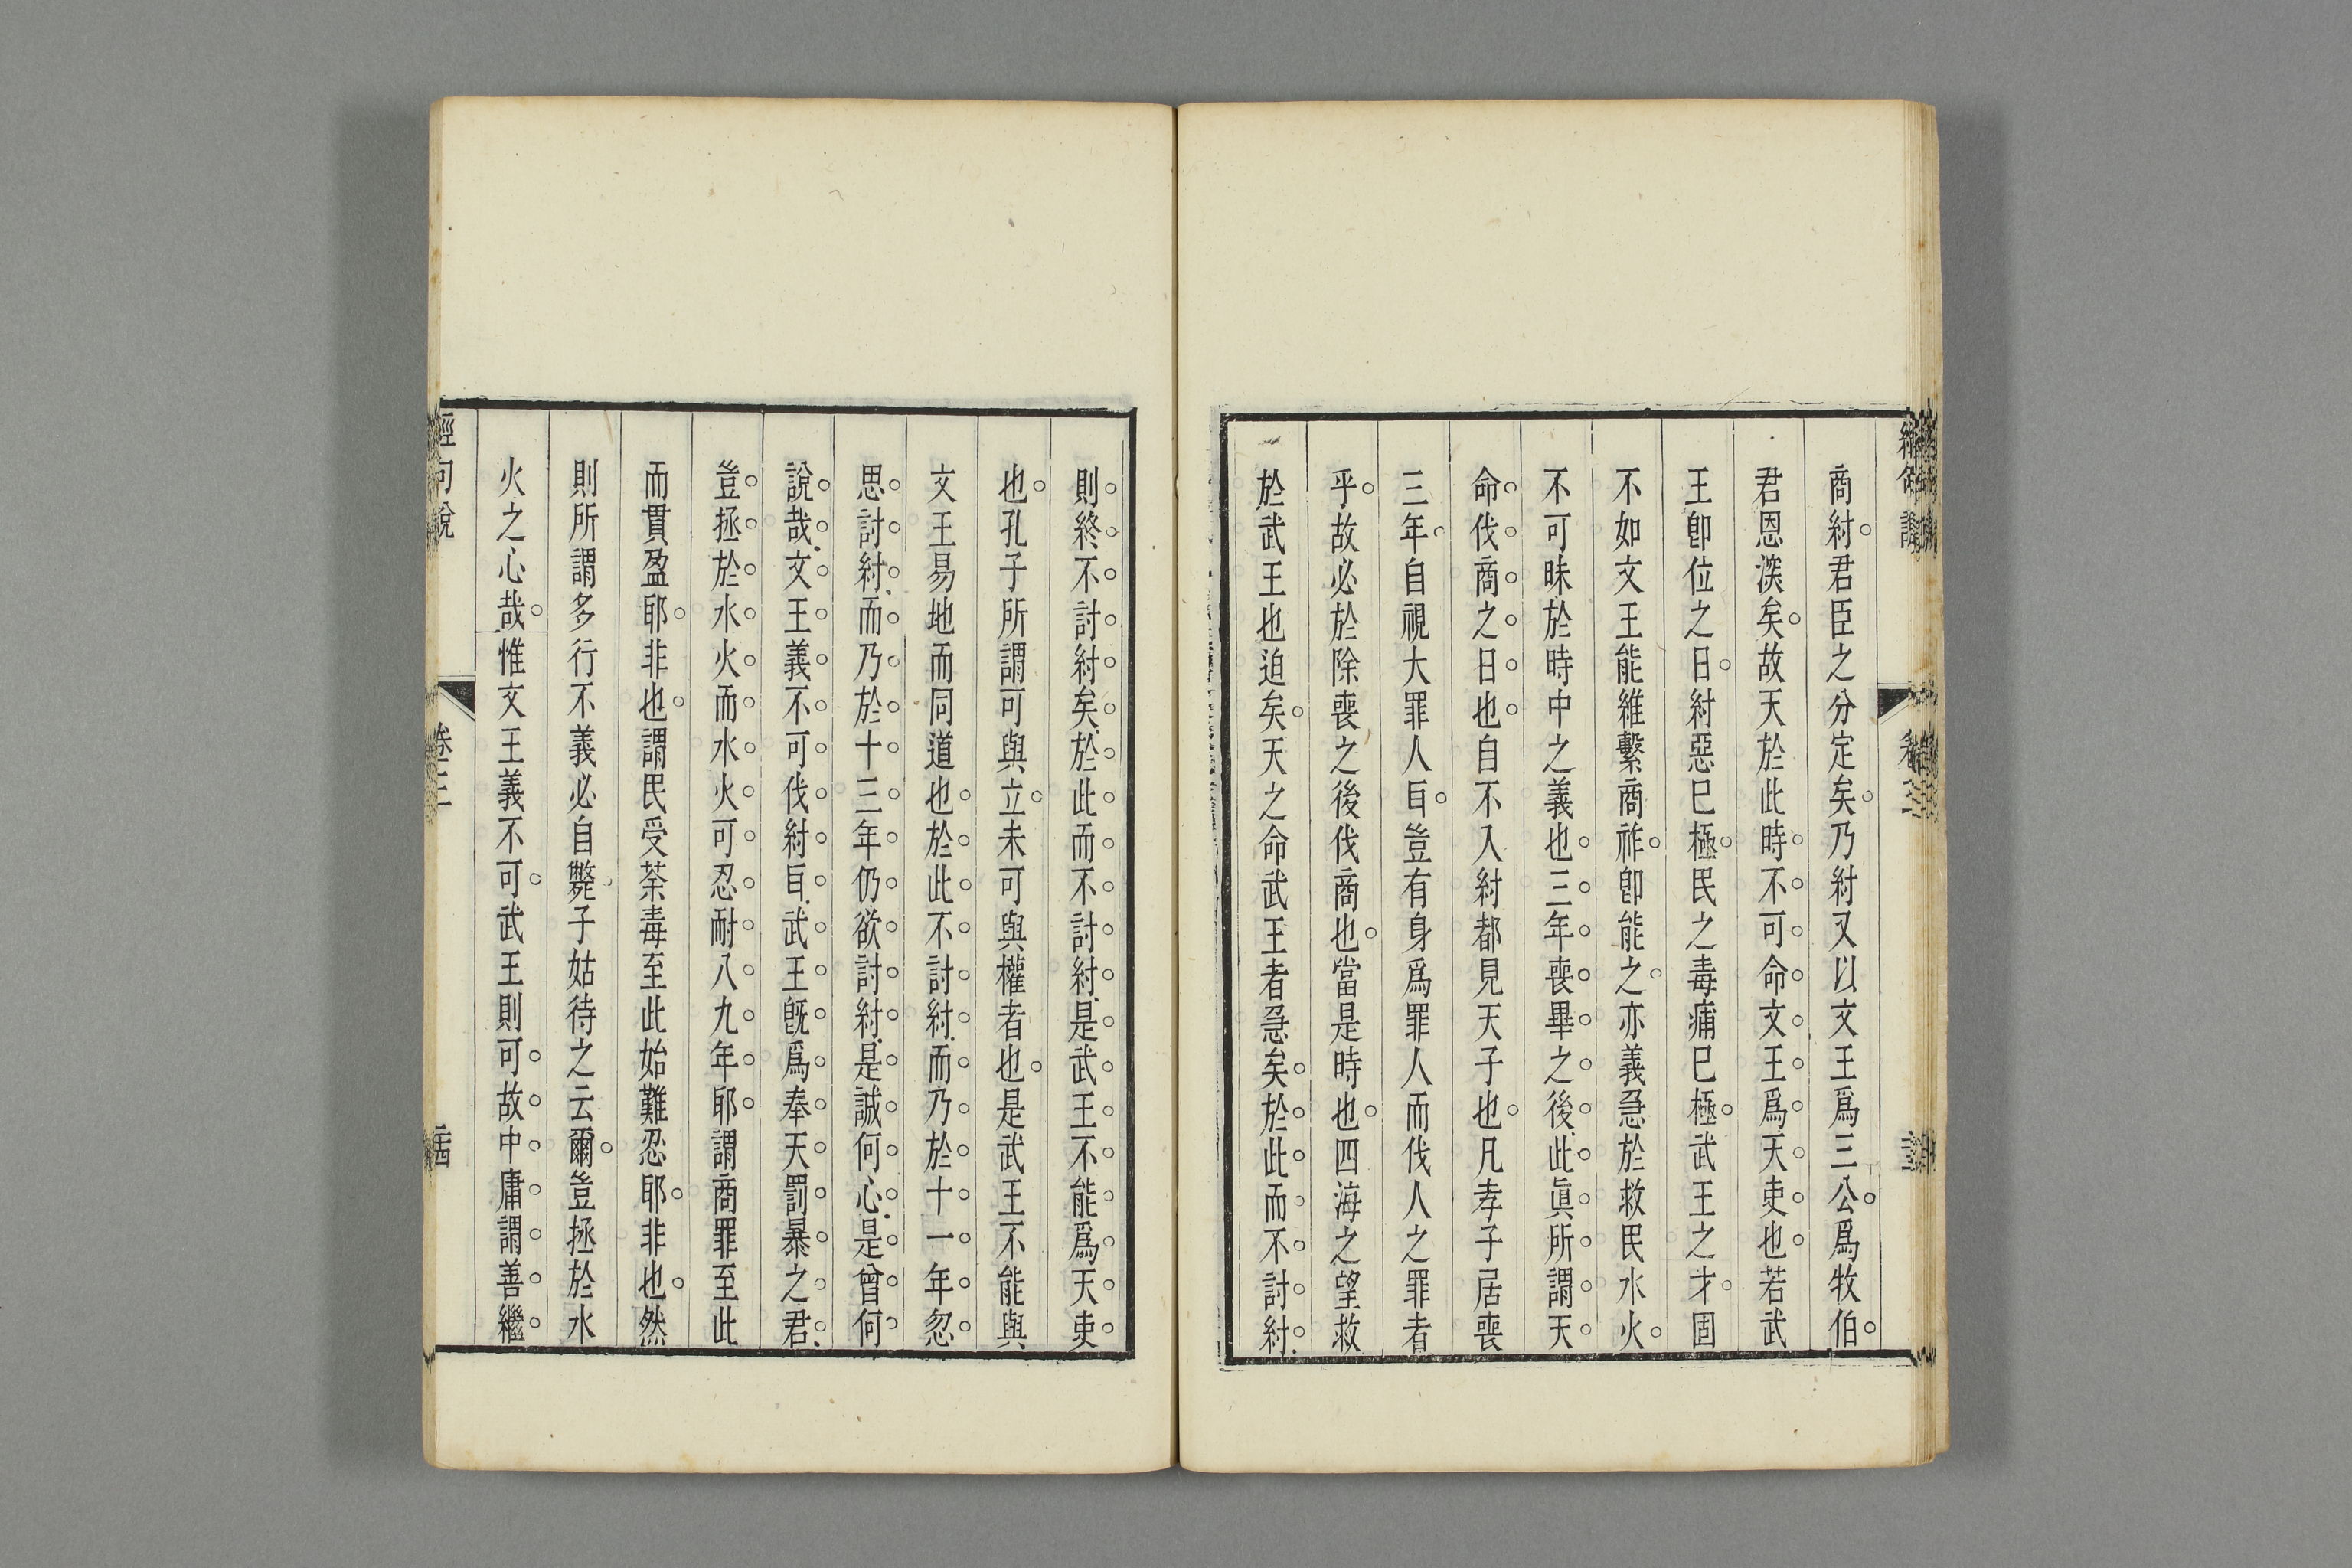 商紂君臣之分定矣乃紂又以文王爲三公爲牧伯
君恩深矣故天於此時不可命文王爲天吏也若武
王卽位之日紂惡已極民之毒痡已極武王之才固
不如文王能維繫商祚卽能之亦義急於救民水火
不可昧於時中之義也三年喪畢之後此眞所謂天
命伐商之日也自不入紂都見天子也凡孝子居喪
三年自視大罪人耳豈有身爲罪人而伐人之罪者
乎故必於除喪之後伐商也當是時也四海之望救
於武王也迫矣天之命武王者急矣於此而不討紂
則終不討紂矣於此而不討紂是武王不能爲天吏
也孔子所謂可與立未可與權者也是武王不能與
文王易地而同道也於此不討紂而乃於十一年忽
思討紂而乃於十三年仍欲討紂是誠何心是曾何
說哉文王義不可伐紂耳武王旣爲奉天罰暴之君
豈拯於水火而水火可忍耐八九年耶謂商罪至此
而貫盈耶非也謂民受荼毒至此始難忍耶非也然
則所謂多行不義必自斃子姑待之云爾豈拯於水
火之心哉惟文王義不可武王則可故中庸謂善繼
經句說
卷三